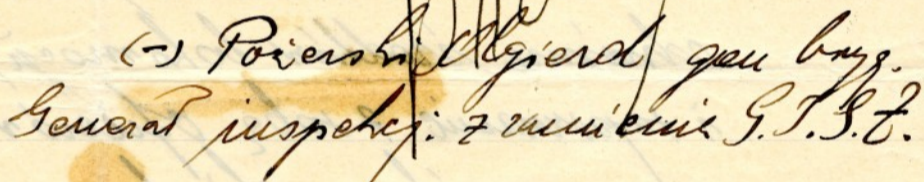 (-) Pożerski Olgierd gen bryg.
Generał inspekcj. z ramienia G.I.S.Z.